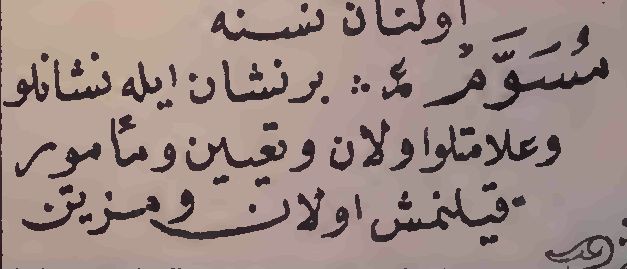 اولنان نسنه
مُسَوَّمْ ع : بر نشان ايله نشانلو
وعلامتلو اولان وتعيين ومأمور
قيلنمش اولان ومزين